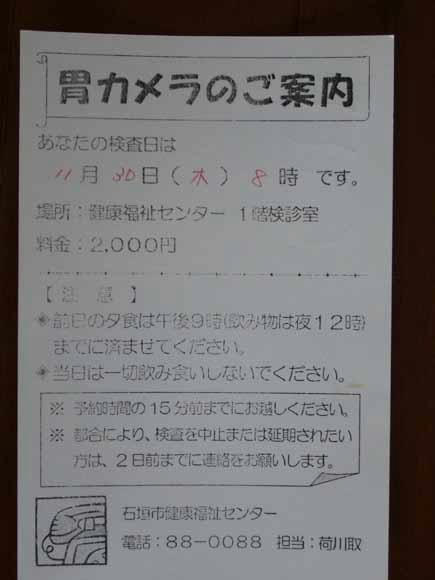 胃カメラのご案内
あなたの検査日は
11月 30日(木) 8時 です。
場所:健康福祉センター 1階検診室
料金:2,000円
【 注 意 】
◈前日の夕食は午後9時(飲み物は夜12時)
までに済ませてください。
◈当日は一切飲み食いしないでください。
※ 予約時間の15分前までにお越しください。
※ 都合により、検査を中止または延期されたい
方は、2日前までに連絡をお願いします。
石垣市健康福祉センター
電話:88-0088 担当:荷川取